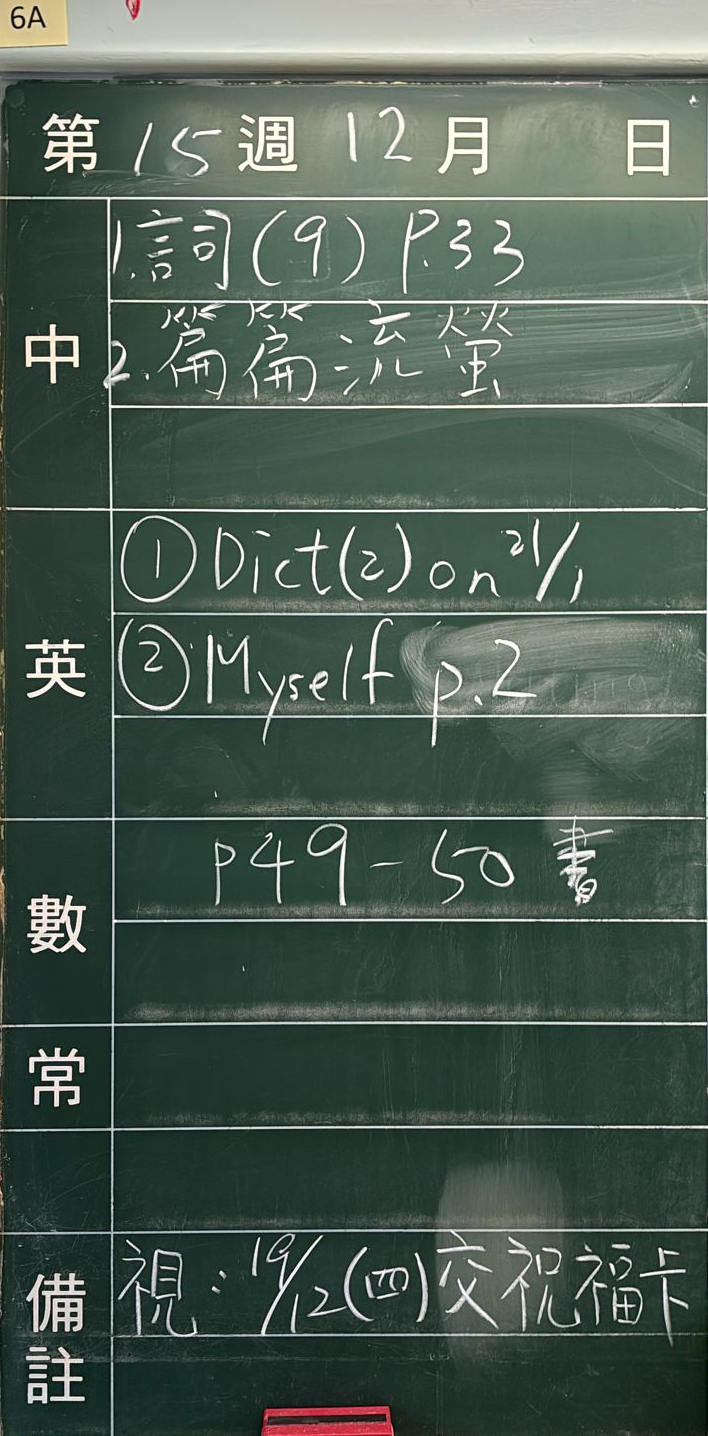 6A
第15週12月 日
中
1.詞(9) P.33
2.篇篇流螢
英
①Dict(2) on 21/1
②Myself p.2
數
P49-50 書
常
備註
視:19/12(四)交祝福卡